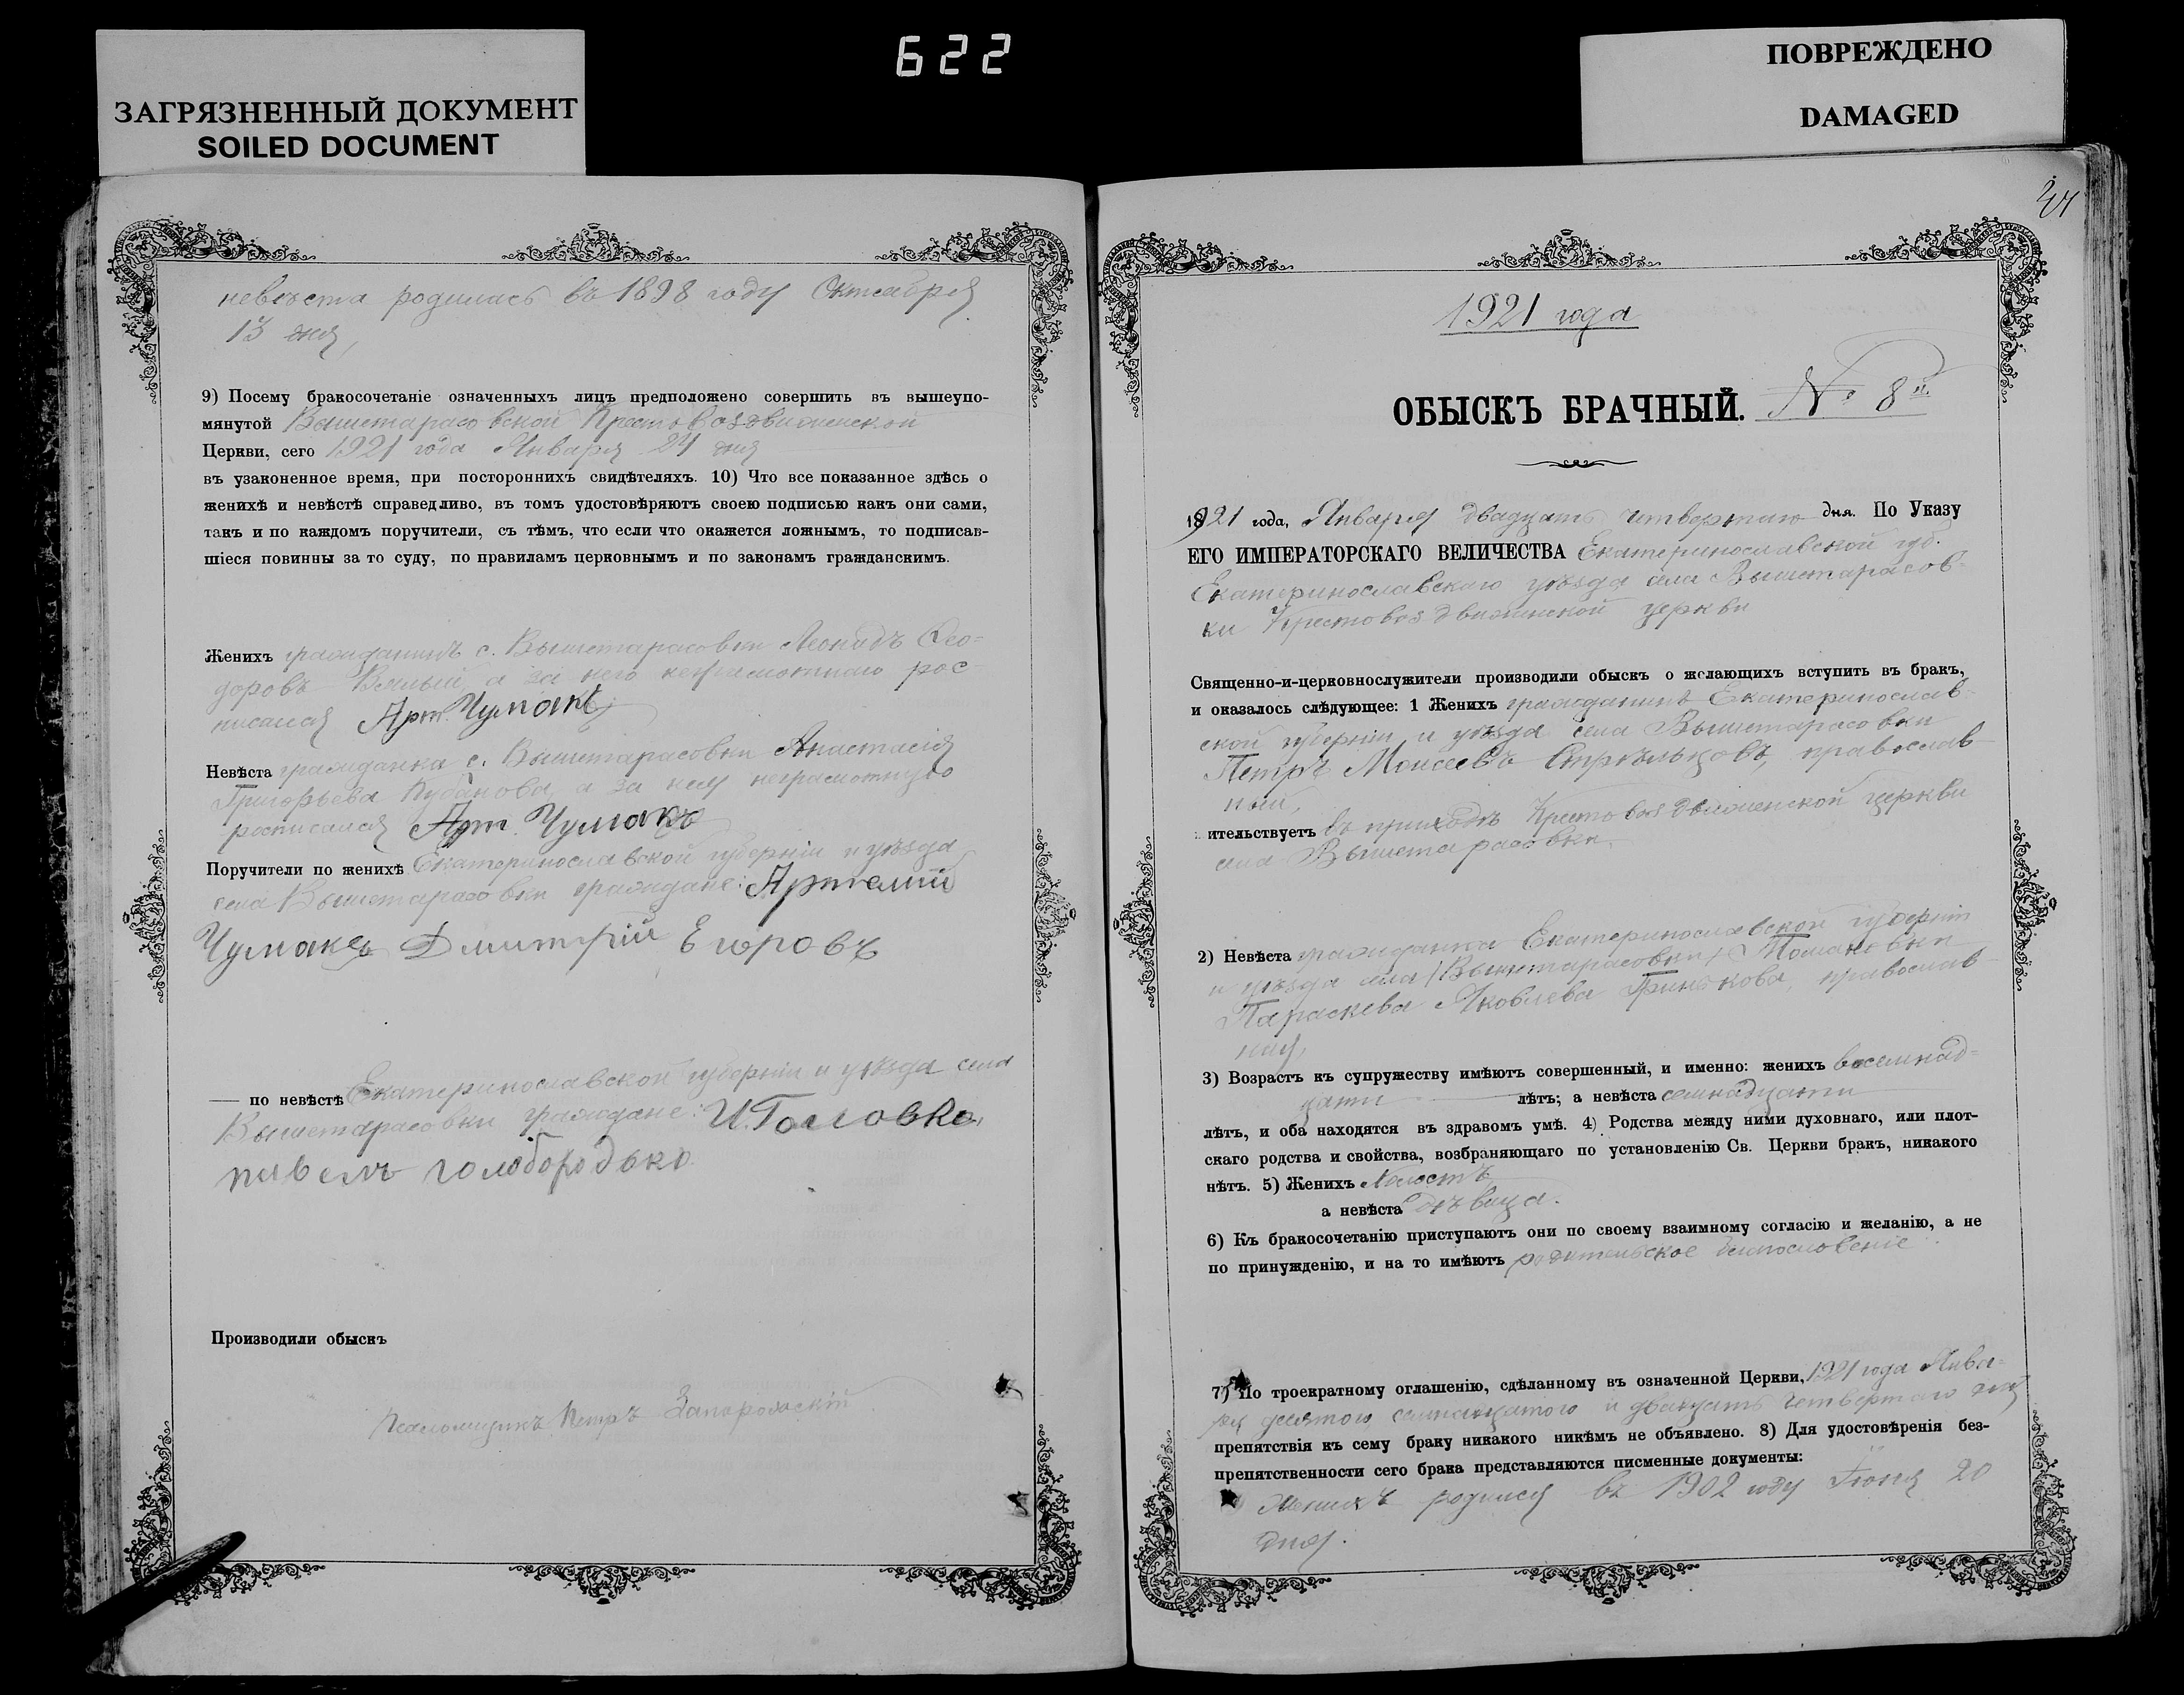 ЗАГРЯЗНЕННЫЙ ДОКУМЕНТ
SOILED DOCUMENT
622
ПОВРЕЖДЕНО
DAMAGED
невѣста родилась въ 1898 году Октября
13 дня,
9) Посему бракосочетаніе означенныхъ лицъ предположено совершить въ вышеупо-
мянутой Вышетарасовской Крестовоздвиженской
Церкви, сего 1921 года Января 24 дня
въ узаконенное время, при постороннихъ свидѣтеляхъ. 10) Что все показанное здѣсь о
женихѣ и невѣстѣ справедливо, въ томъ удостовѣряютъ своею подписью какъ они сами,
такъ и по каждомъ поручители, съ тѣмъ, что если что окажется ложнымъ, то подписав-
шіеся повинны за то суду, по правиламъ церковнымъ и по законамъ гражданскимъ.
Женихъ гражданинъ с. Вышетарасовки Леонидъ Ѳео-
доровъ а за него неграмотнаго рос-
писался Арт. Чумакъ
Невѣста гражданка с. Вышетарасовки Анастасія
Григорьева а за нея неграмотную
росписался Арт. Чумакъ
Поручители по женихѣ Екатеринославской губерніи и уѣзда
села Вышетарасовки граждане: Артемій
Чумакъ Дмитрій Егоровъ
— по невѣстѣ Екатеринославской губерніи и уѣзда села
Вышетарасовки граждане: И. Головко,
павелъ голобородько
Производили обыскъ
Псаломщикъ Петръ Запорожскій
1921 года
ОБЫСКЪ БРАЧНЫЙ. № 8й.
1921 года, Января двадцать четвертаго дня. По Указу
ЕГО ИМПЕРАТОРСКАГО ВЕЛИЧЕСТВА Екатеринославской губ.
Екатеринославскаго уѣзда села Вышетарасов-
ки Крестовоздвиженской церкви
Священно-и-церковнослужители производили обыскъ о желающихъ вступить въ бракъ,
и оказалось слѣдующее: 1 Женихъ гражданинъ Екатеринослав-
ской губерніи и уѣзда села Вышетарасовки
Петръ Моисеевъ Стрѣльцовъ, православ-
ный,
ительствуетъ въ приходѣ Крестовоздвиженской церкви
села Вышетарасовки.
2) Невѣста гражданка Екатеринославской губерніи
и уѣзда села (Вышетарасовки) Томаковки
Параскева Яковлева Гринькова, православ-
ная,
3) Возрастъ къ супружеству имѣютъ совершенный, и именно: женихъ восемнад-
цати лѣтъ; а невѣста семнадцати
лѣтъ, и оба находятся въ здравомъ умѣ. 4) Родства между ними духовнаго, или плот-
скаго родства и свойства, возбраняющаго по установленію Св. Церкви бракъ, никакого
нѣтъ. 5) Женихъ Холостъ
а невѣста дѣвица.
6) Къ бракосочетанію приступаютъ они по своему взаимному согласію и желанію, а не
по принужденію, и на то имѣютъ родительское благословеніе
7) По троекратному оглашенію, сдѣланному въ означенной Церкви, 1921 года Янва-
ря десятого семнадцатого и двадцать четвертаго дня
препятствія къ сему браку никакого никѣмъ не объявлено. 8) Для удостовѣренія без-
препятственности сего брака представляются писменные документы:
Женихъ родился въ 1902 году Іюня 20
дня.